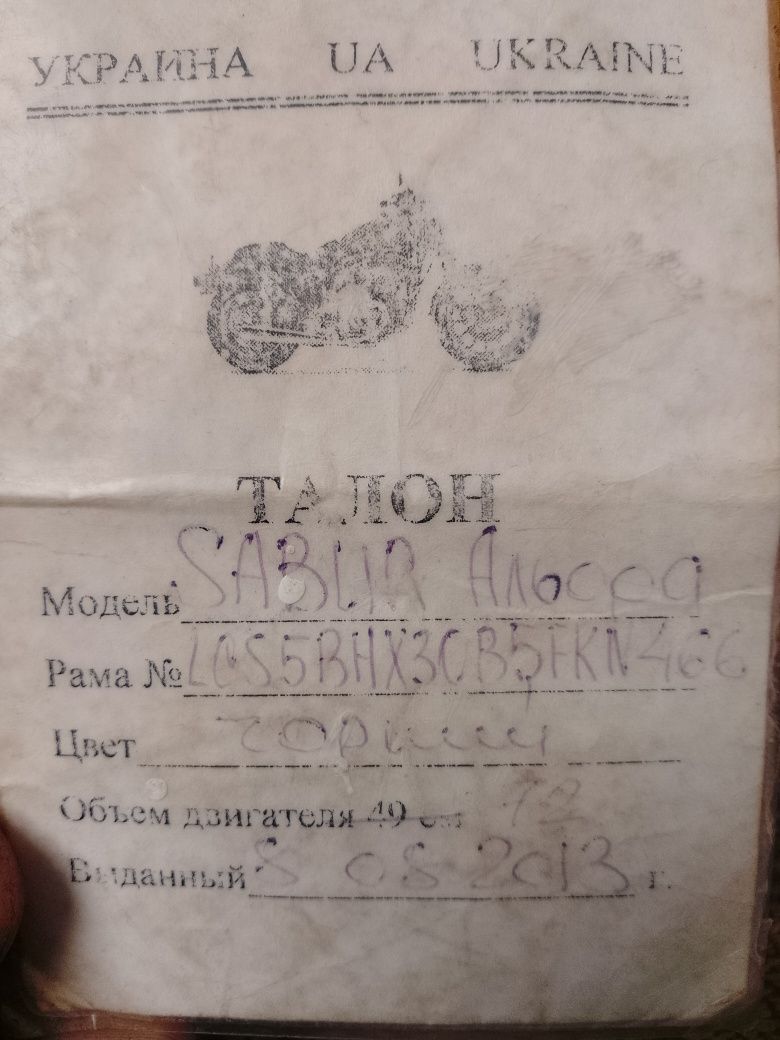 УКРАИНА UA UKRAINE
ТАЛОН
Модель SABUR Альфа
Рама № LCS5BHX3CB5FKN466
Цвет чорний
Объем двигателя 49 см 72
Выданный 8 08 2013 г.